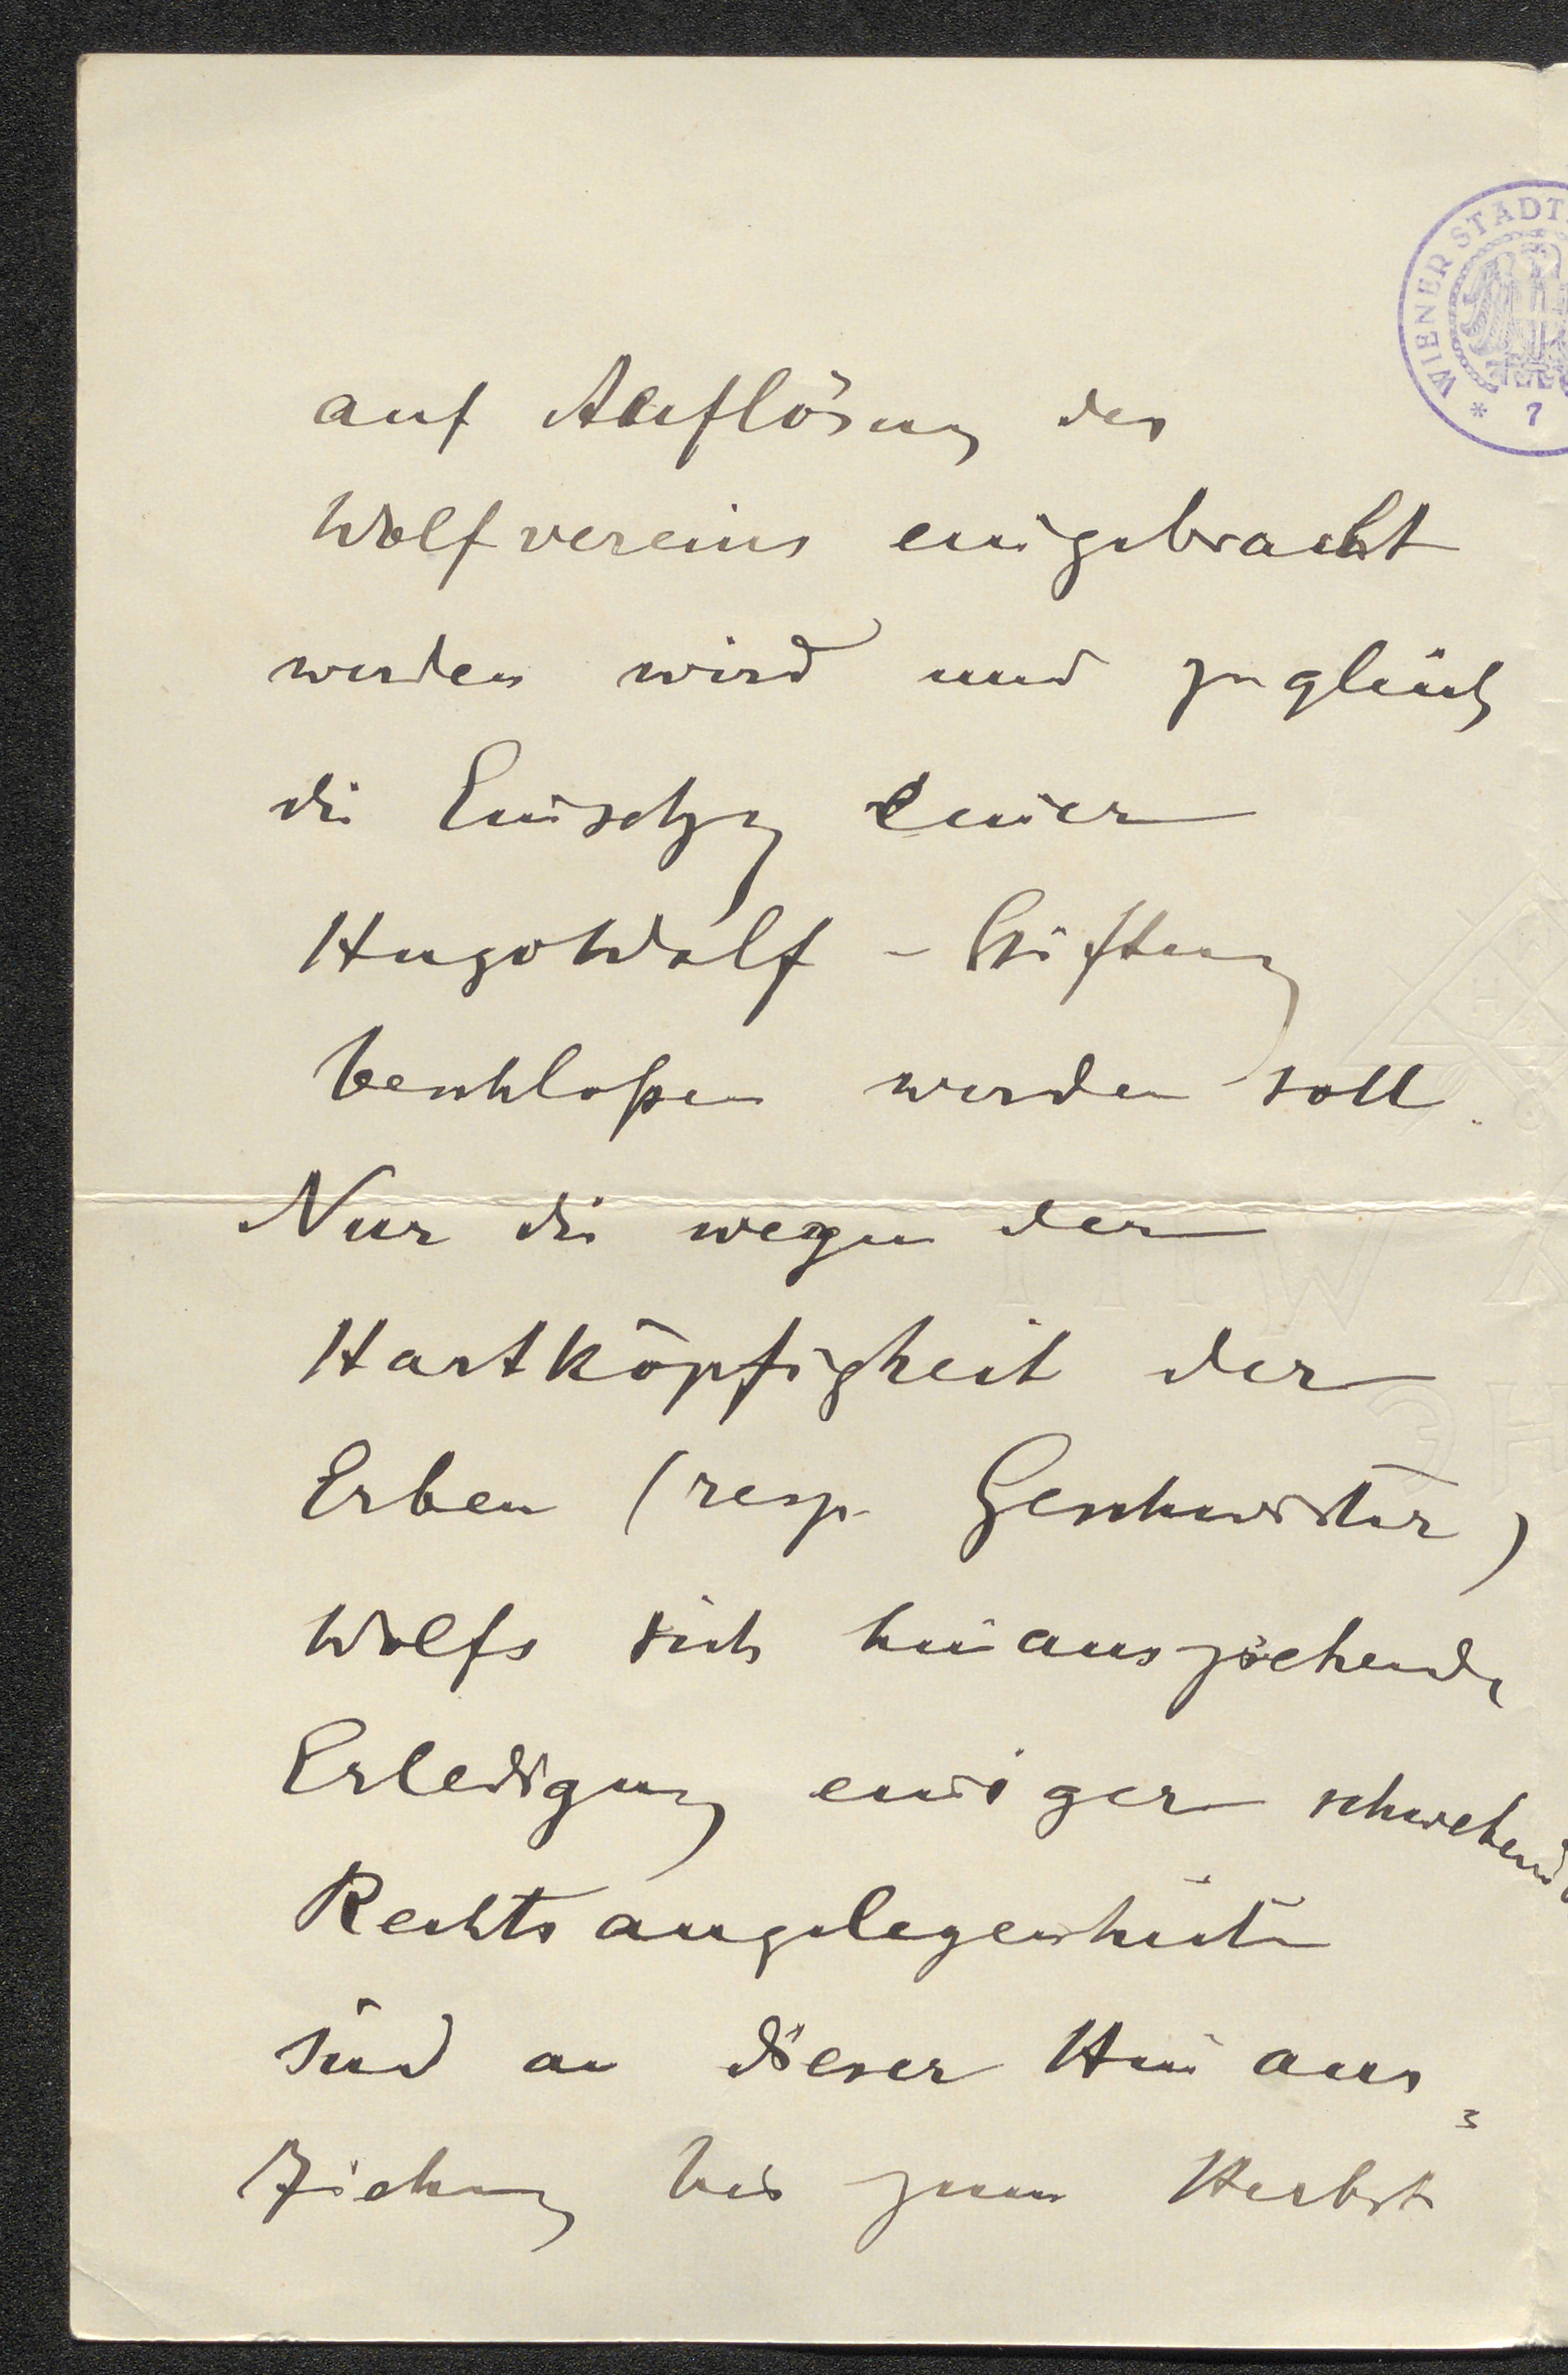 WIENER STADT
* 7
auf Auflösung des
Wolfvereins eingebracht
werden wird und zugleich
die Einsetzg einer
Hugo Wolf - Stiftung
beschloßen werden soll.
Nur die wegen der
Hartköpfigkeit der
Erben (resp. Geschwister)
Wolfs sich hinausziehende
Erledigung einiger schwebend
Rechtsangelegenheiten
sind an dieser Hinaus=
ziehung bis zum Herbst